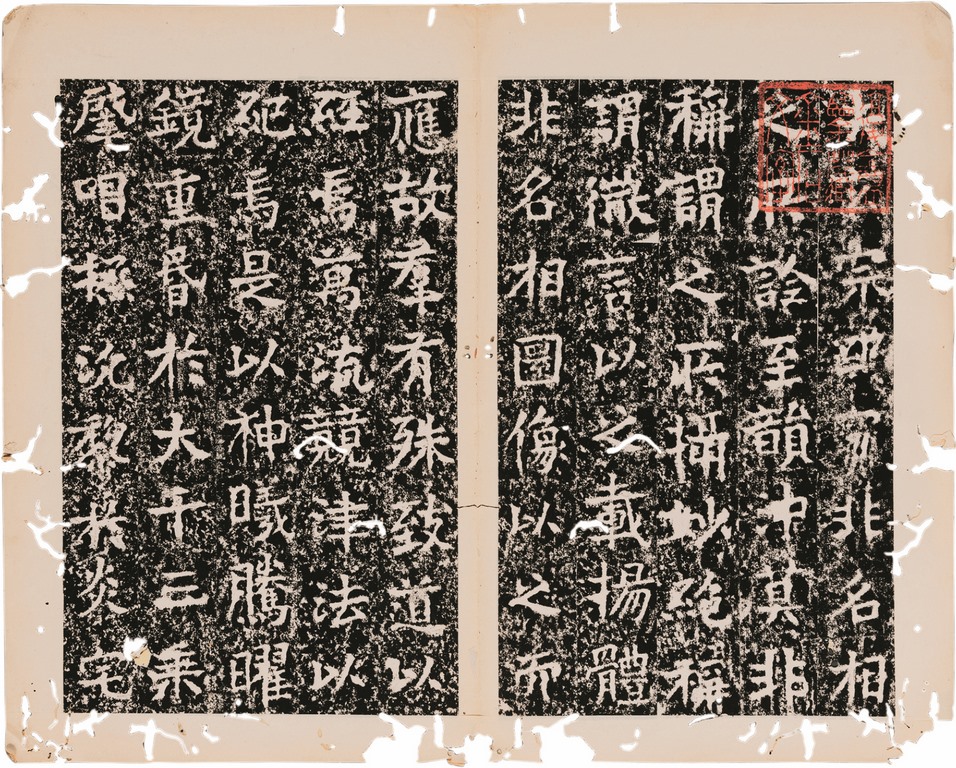 夫玄宗幽非名相
之所詮至韻沖其非
稱謂之所攝妙絕稱
謂微言以之載揚體
非名相圖像以之而
應故羣有殊致道以
經焉萬流競津法以
紀焉是以神曦騰曜
鏡重昏於大千三乘
肇唱拯沉黎於炎宅